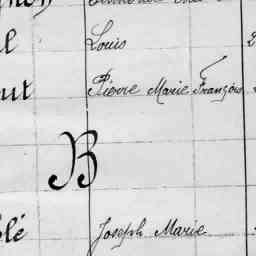 l Louis 2
ut Pierre Marie François
B
lé Joseph Marie